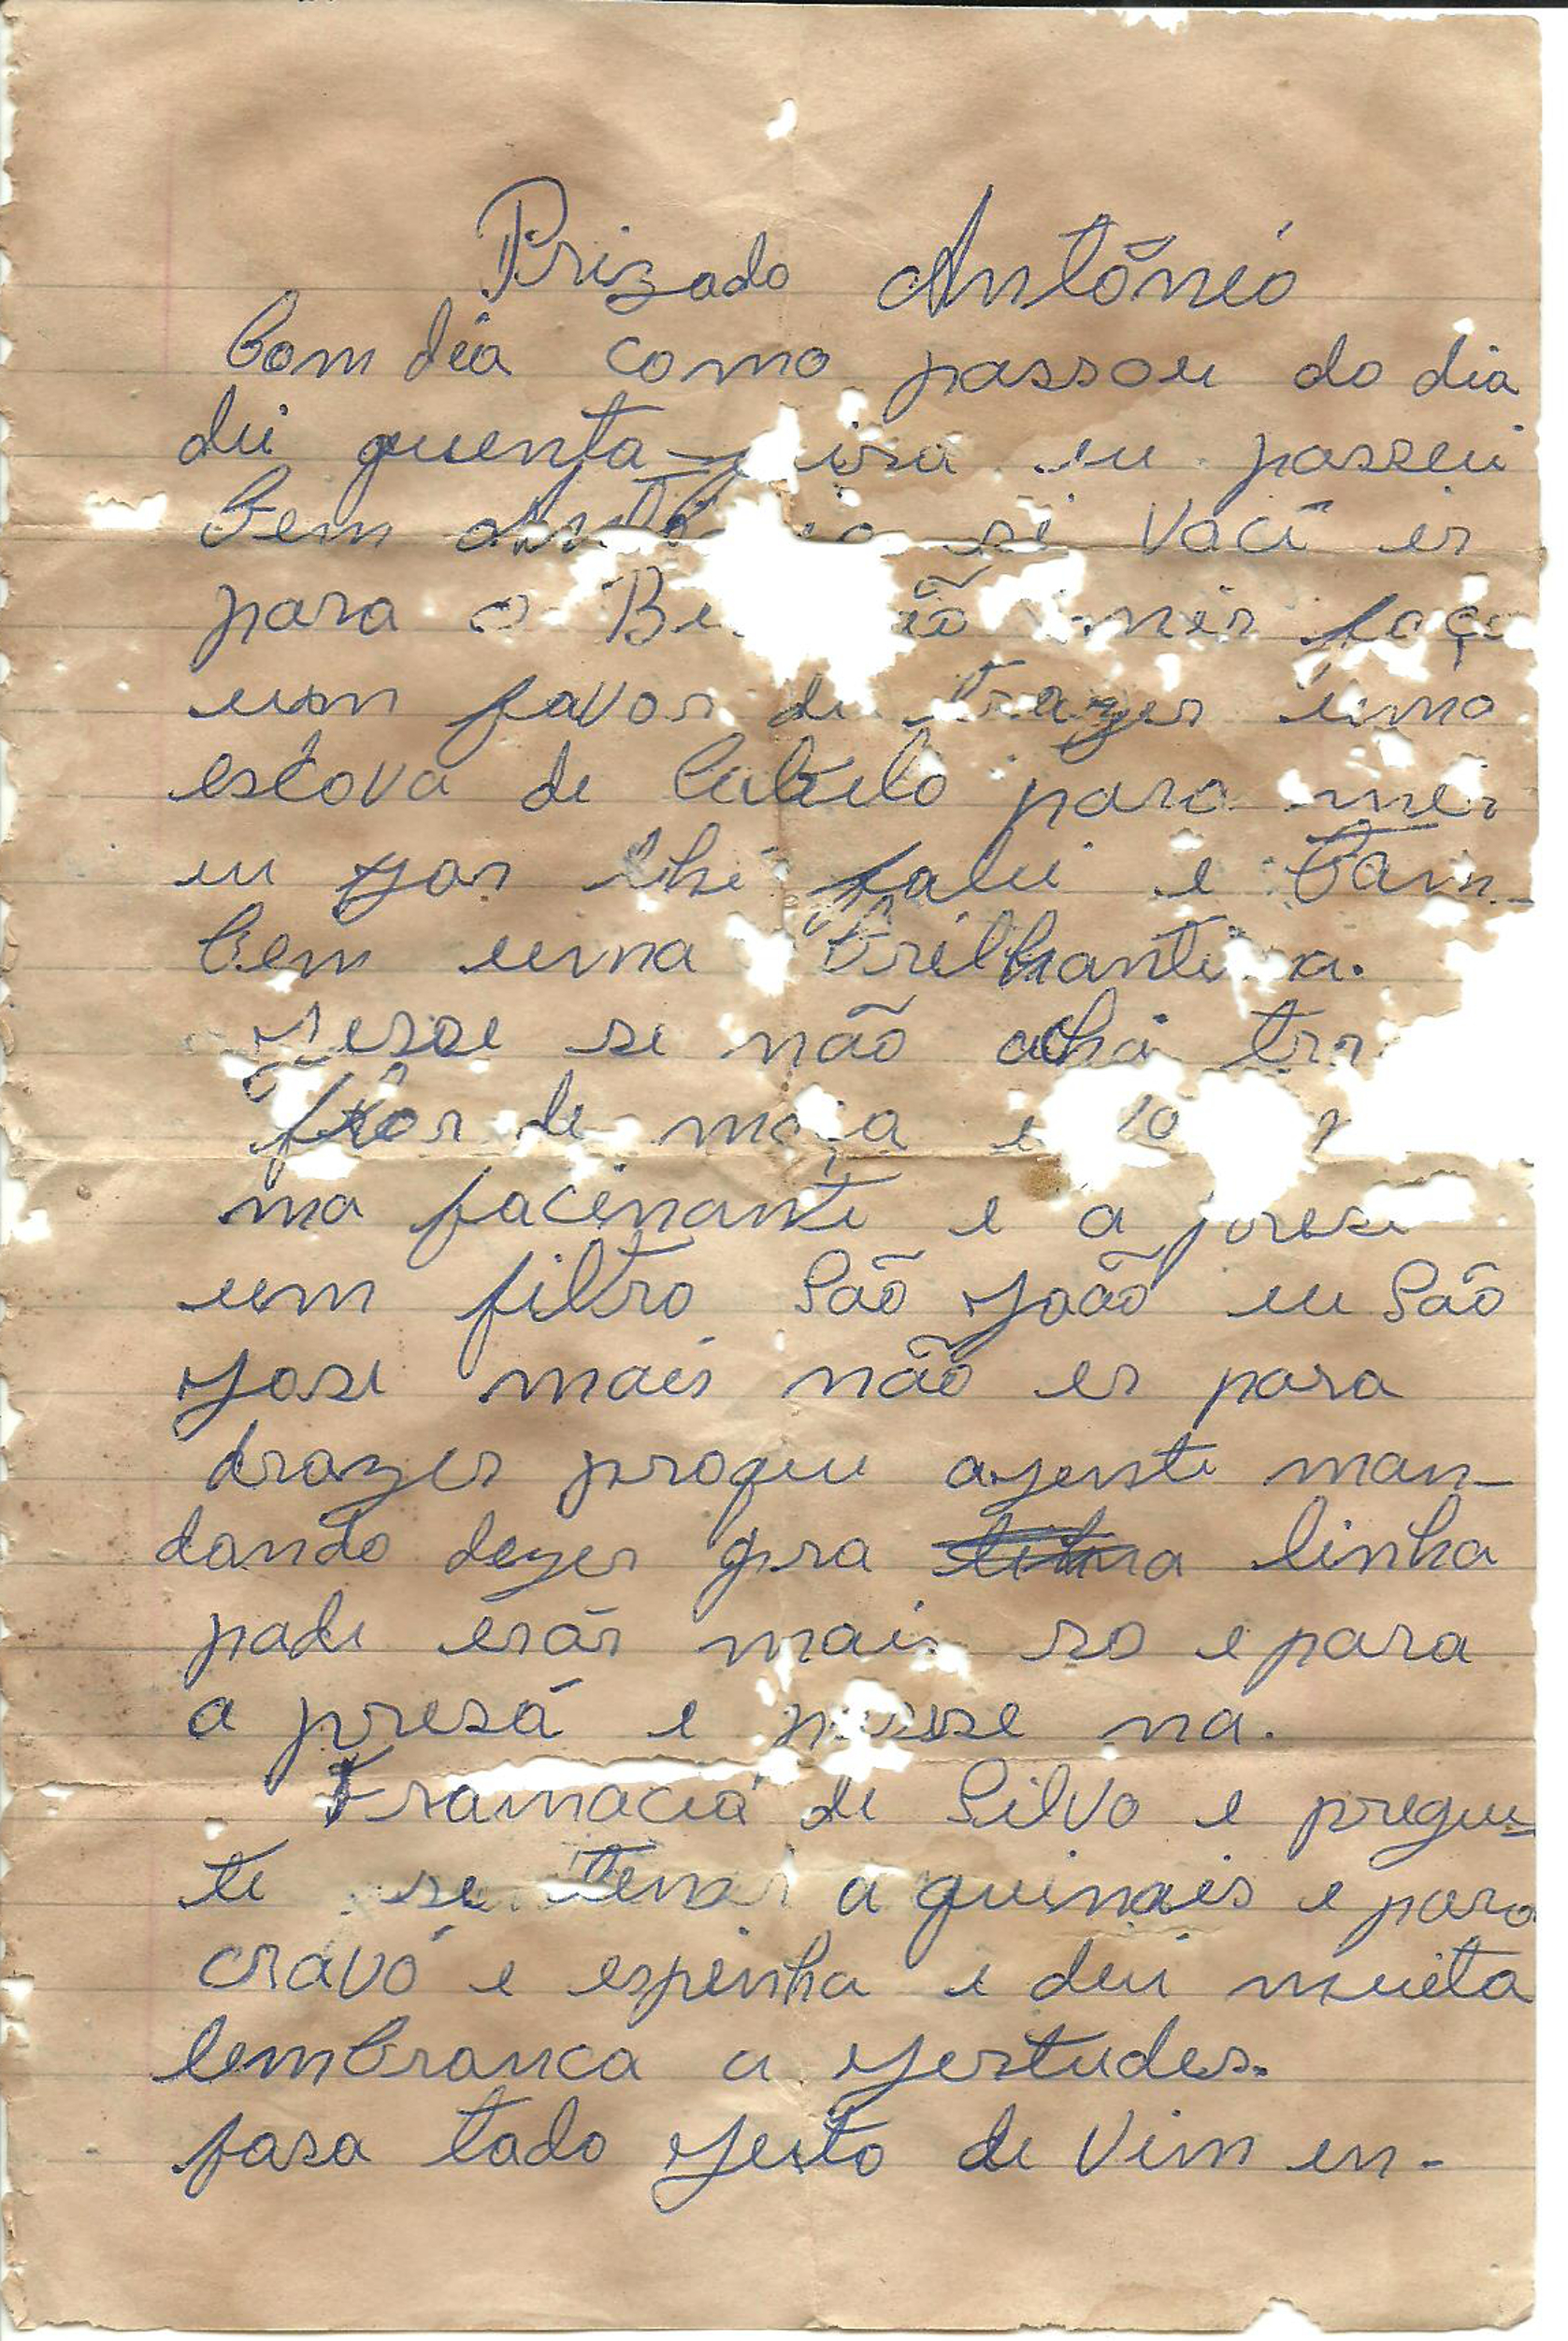 Prizado Antônio
bom dia como passou do dia
di quenta eu passeu
bem si Vocí er
para o mir faça
um favor di trazer uma
escova de Cabelo para mir
eu jar lhi falei e Tam-
bem uma
se não achá
flor de e
ma facinanti e a
um filtro São João eu São
José mais não er para
drazer proque agenti man-
dando dezer gra linha
padi erár mais so e para
a presá e na.
Framaciá de Silva e pregu=
ti se a guimais e para
cravo e espinha e dei muita
lembranca a Jertudes.
fasa tado Jeito de Vim en-